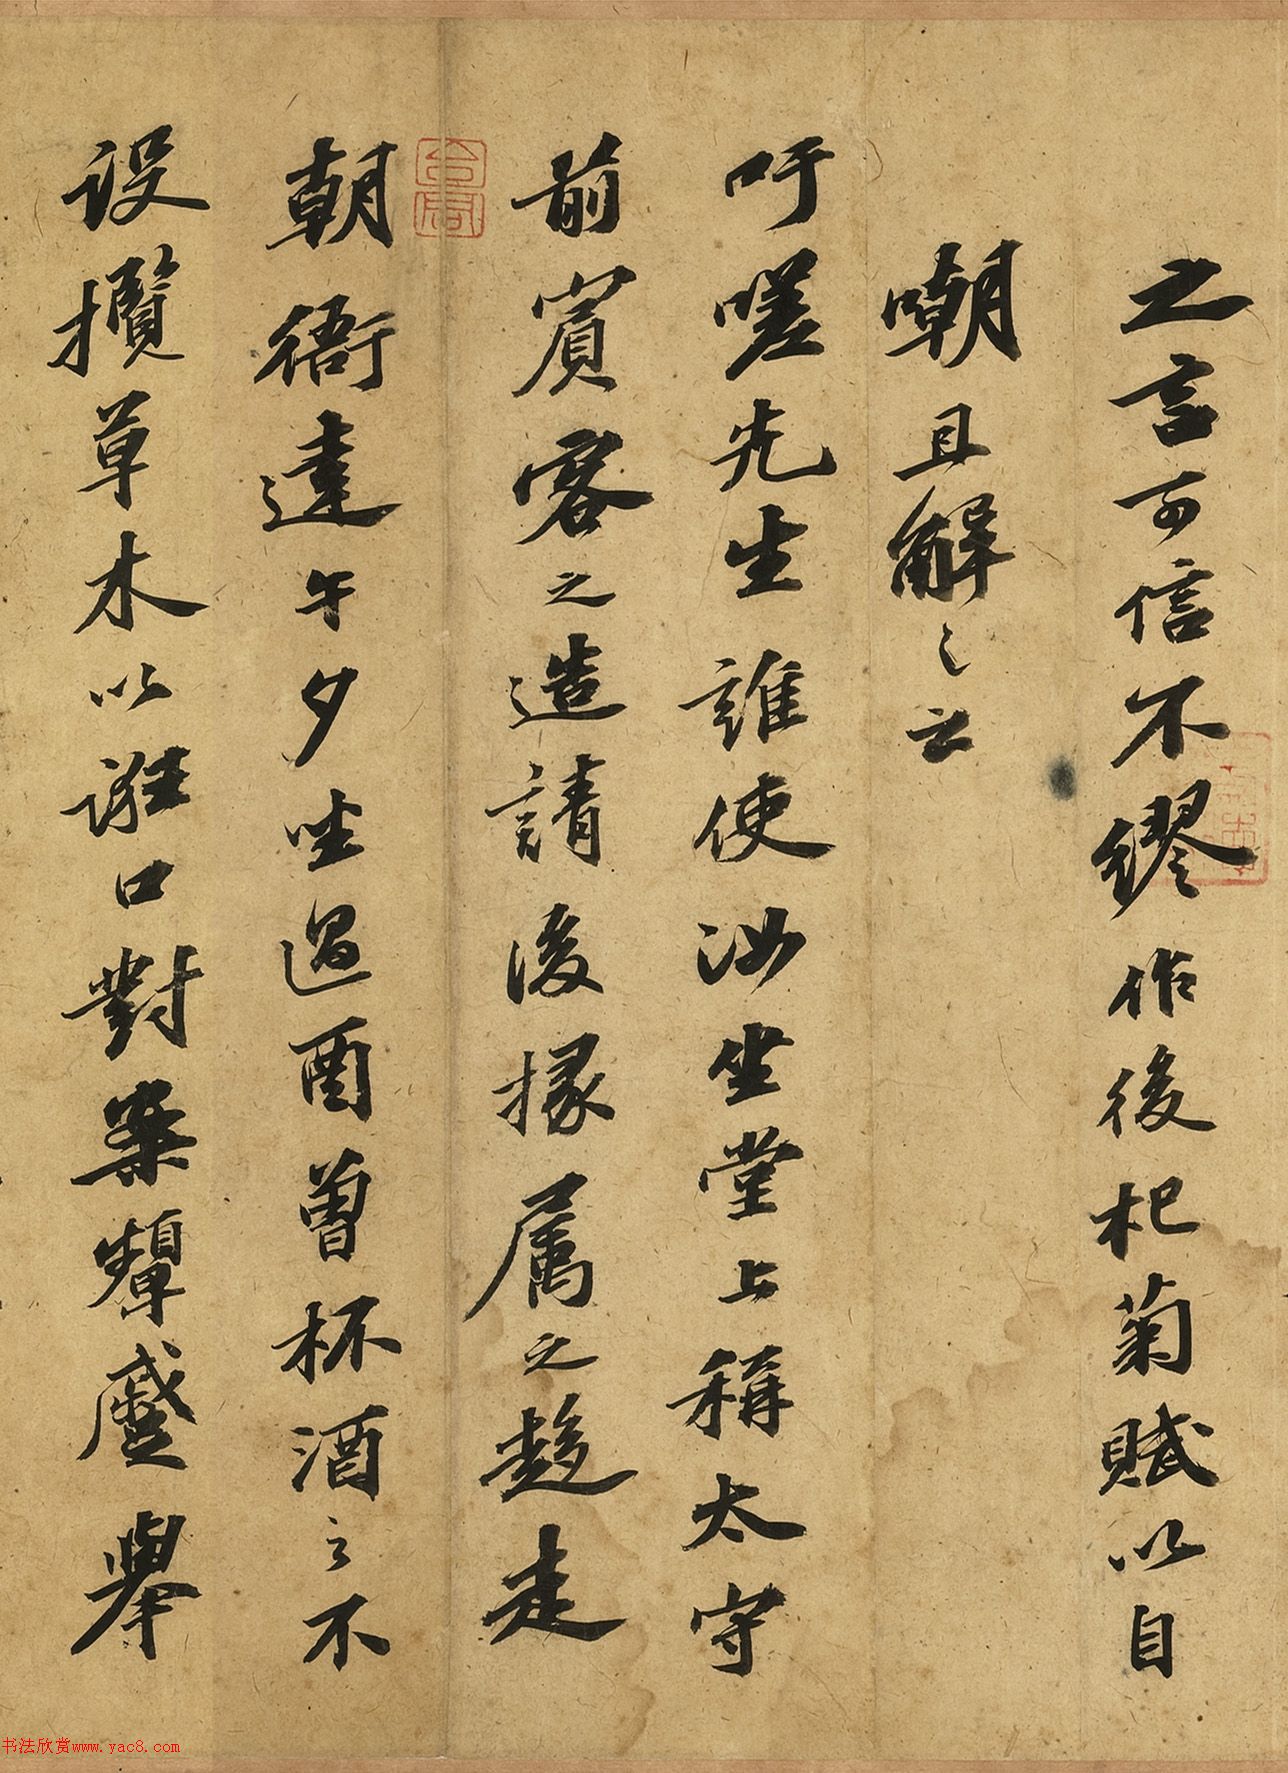 之言可信不繆作後杞菊賦以自
嘲且解之云
吁嗟先生誰使汝坐堂上稱太守
前賓客之造請後掾属之趍走
朝衙達午夕坐過酉曾杯酒之不
設攬草木以誑口對案顰蹙舉
书法欣赏www.yac8.com